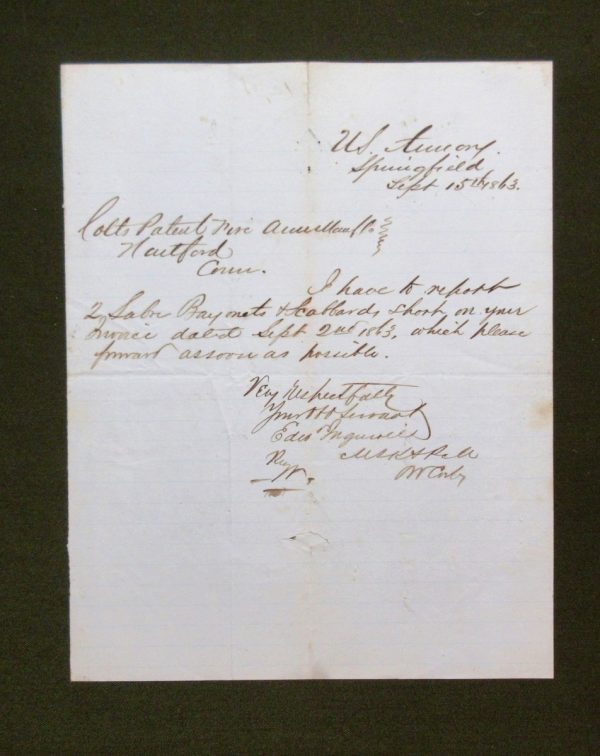 US. Armory.
Springfield
Sept 15th 1863.
Colts Patent Fire Arms Manf Co
Hartford
Conn.
I have to report
2 Sabre Bayonets & Scabbards short on your
Invoice dated Sept 2nd 1863, which please
forward as soon as possible.
Very Respectfully
Your Obt Servant
Edw Ingersoll